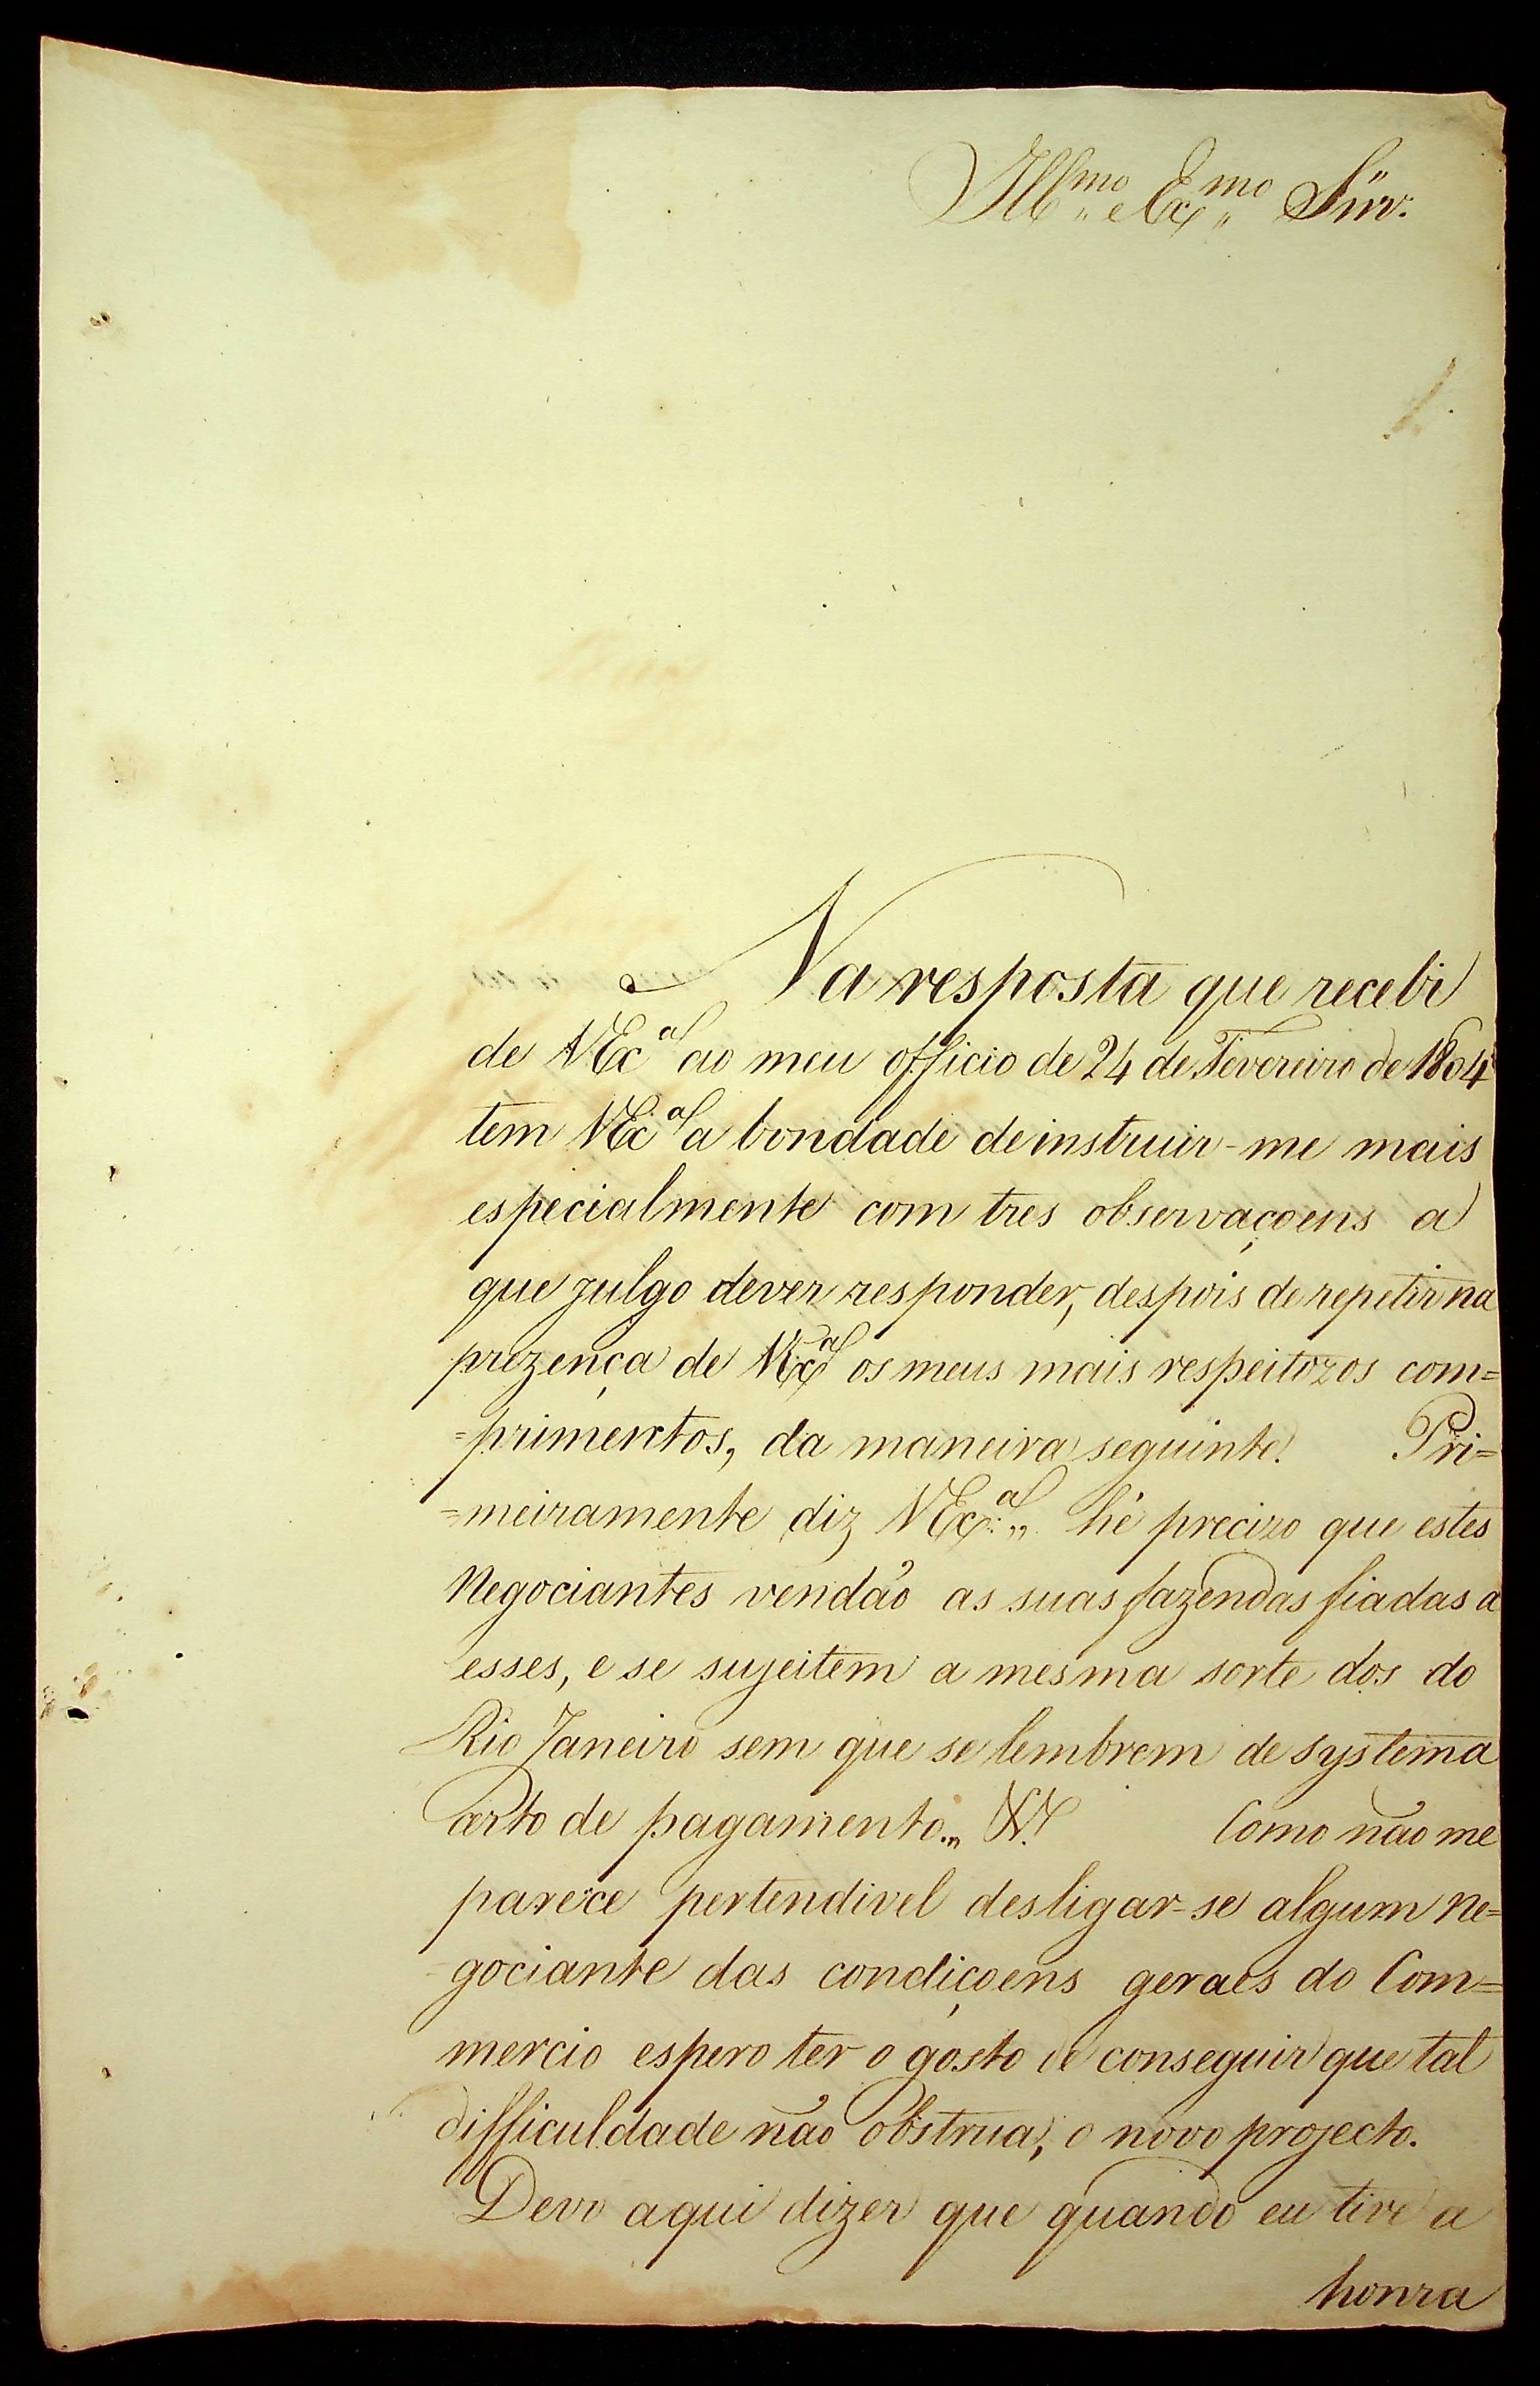 Ill.mo e Ex.mo Snr.
Na resposta que recebi
de V Exc.a ao meu officio de 24 de Fevereiro de 1804
tem V Exc.a a bondade de instruir-me mais
especialmente com tres observaçoens a
que julgo dever responder, despois de repetir na
prezença de V Exc.a os meus mais respeitozos com=
=primentos, da maneira seguinte. Pri=
=meiramente diz V Exc.a „ hé precizo que estes
Negociantes vendão as suas fazendas fiadas a
esses, e se sujeitem a mesma sorte dos do
Rio Janeiro sem que se lembrem de systema
certo de pagamento. „ Como não me
parece pertendivel desligar-se algum Ne=
gociante das condiçoens geraes do Com=
mercio espero ter o gosto de conseguir que tal
difficuldade não obstrua, o novo projecto.
Devo aqui dizer que quando eu tive a
honra